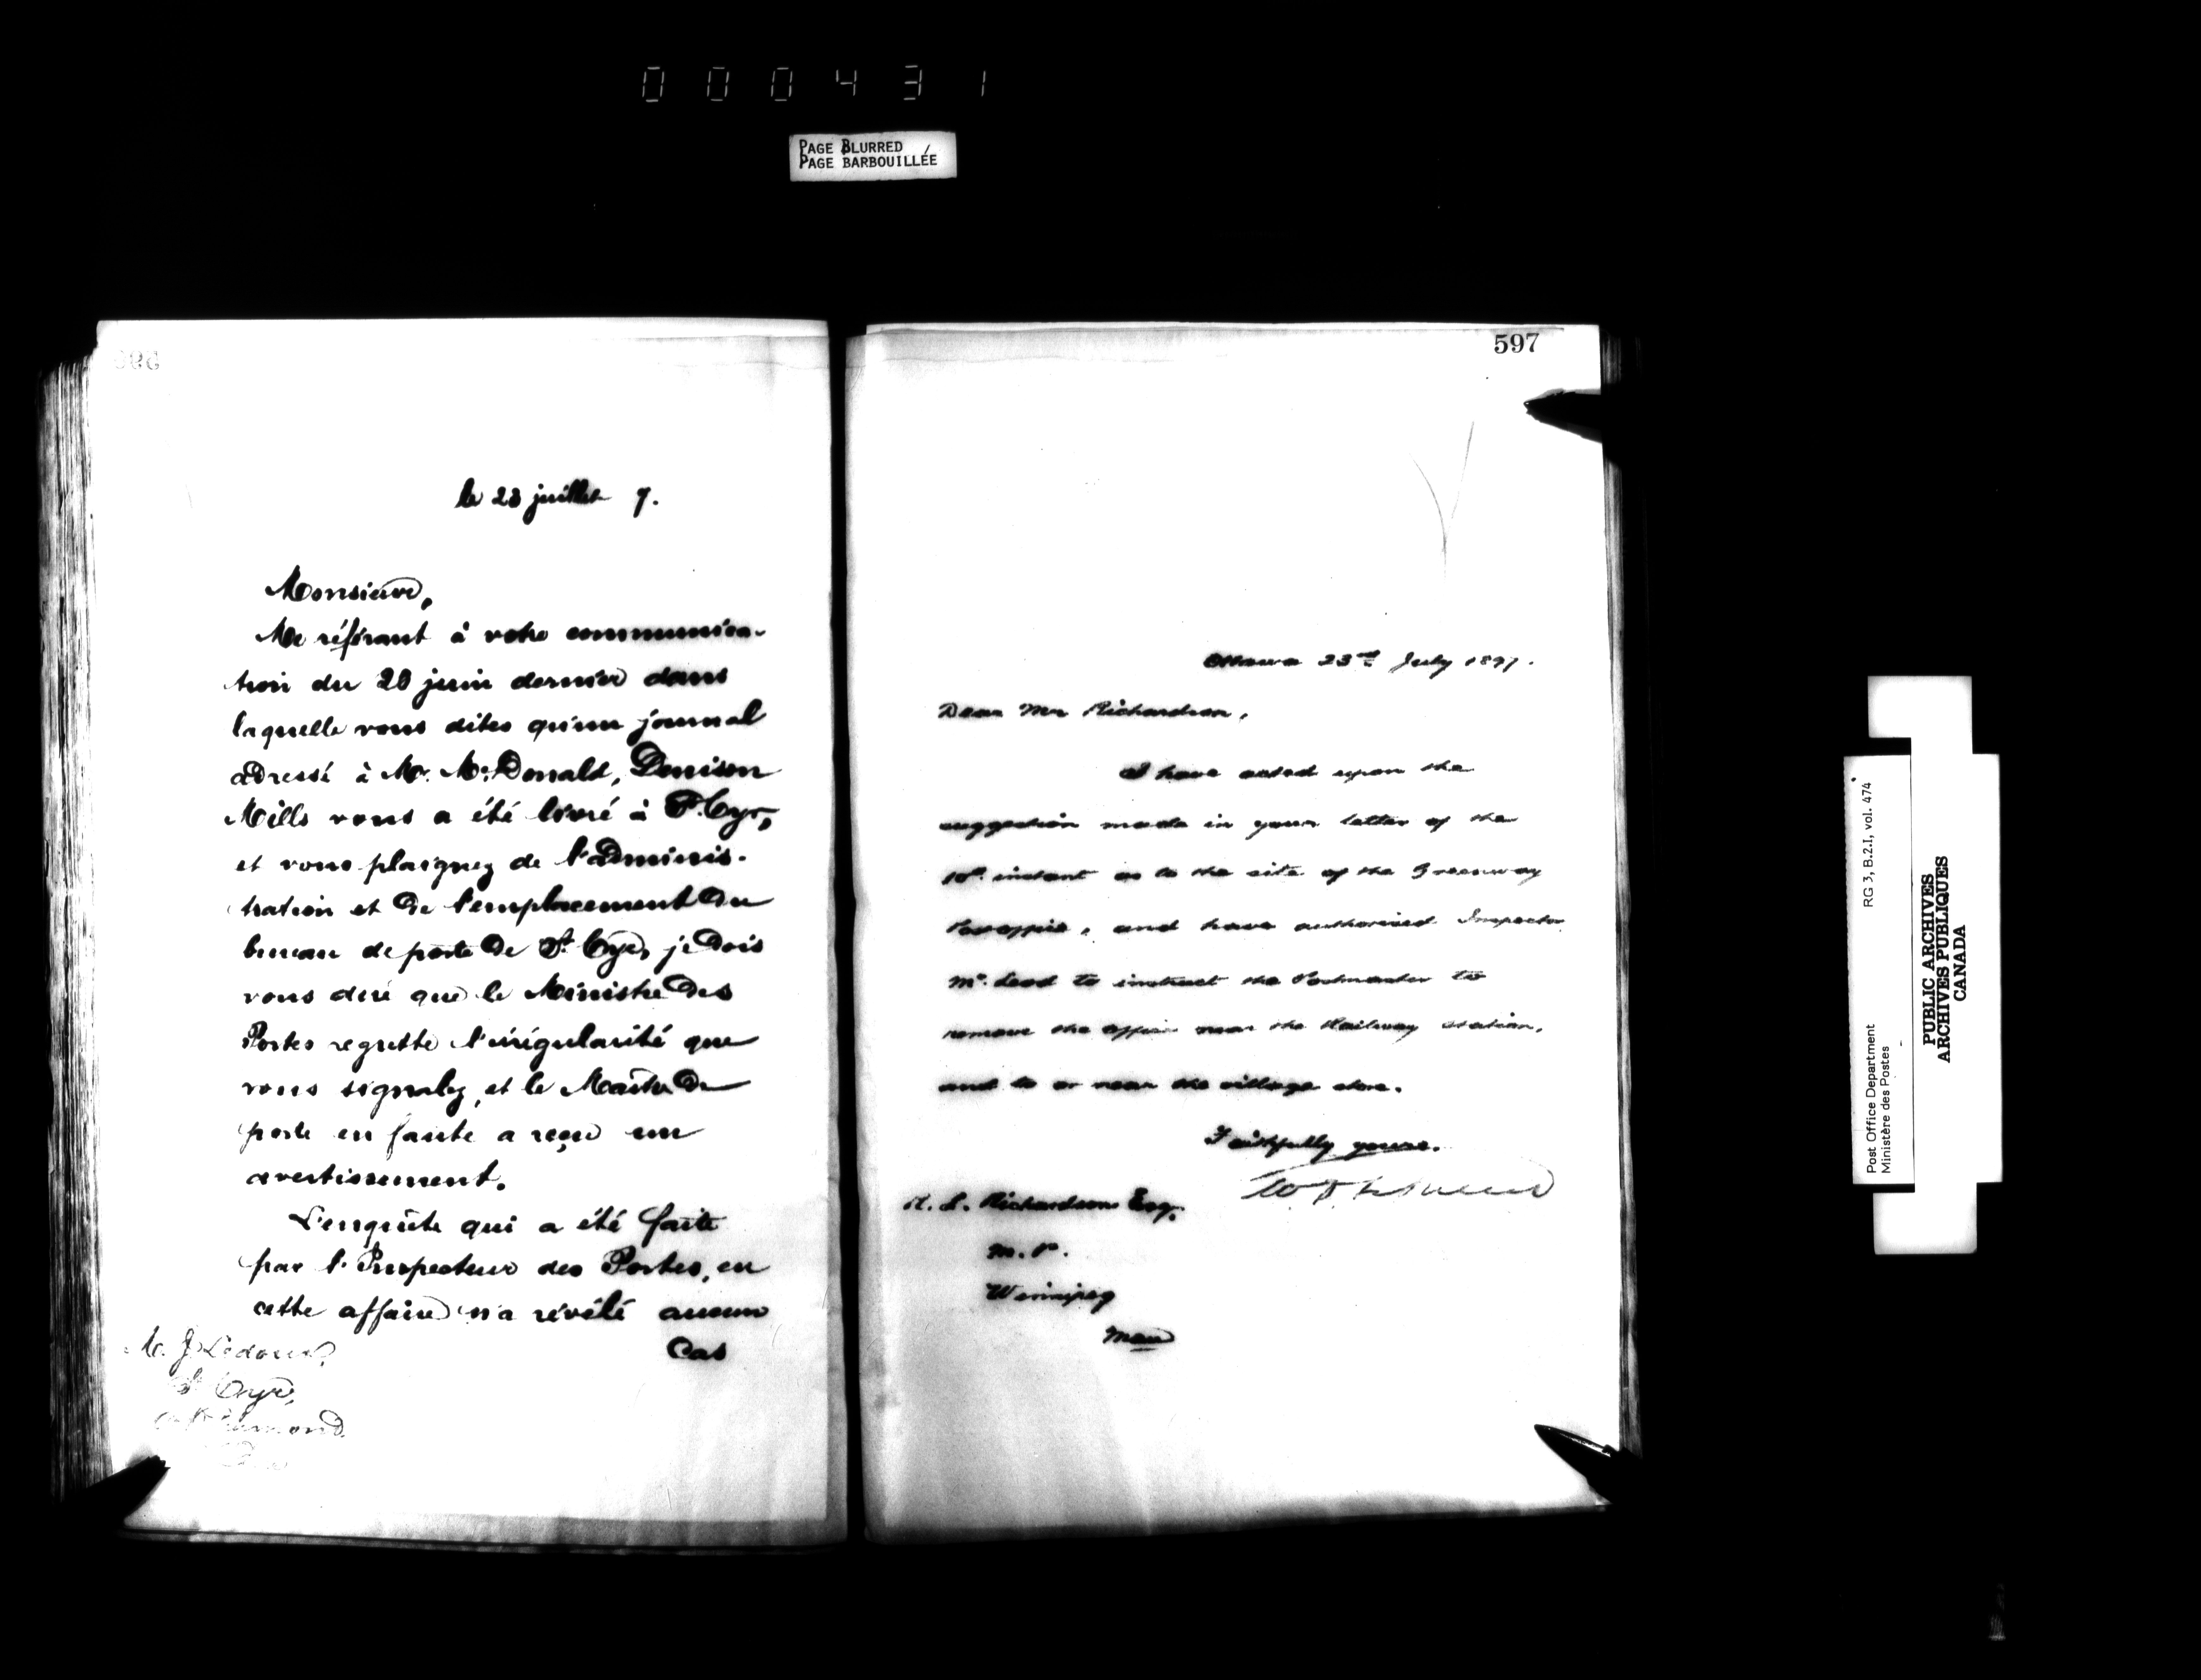 000431
PAGE BLURRED
PAGE BARBOUILLÉE
le 23 juillet 7.
Monsieur,
Me référant à votre communica-
tion du 20 juin dernier dans
laquelle vous dites qu'un journal
adressé à Mr. McDonald, Denison
Mills vous a été livré à St. Cyr,
et vous plaignez de l'adminis-
tration et de l'emplacement du
bureau de poste de St. Cyr, je dois
vous dire que le Ministre des
Postes regrette l'irrégularité que
vous signalez, et le Maître de
poste en faute a reçu un
avertissement.
L'enquête qui a été faite
par l'Inspecteur des Postes, en
cette affaire n'a révélé aucun
Cas
M. J. Ledoux,
St Cyr,
597
Ottawa 23rd July 1897.
Dear Mr Richardson,
I have acted upon the
suggestion made in your letter of the
10th instant as to the site of the Greenway
Postoffice, and have authorised Inspector
McLeod to instruct the Postmaster to
remove the office near the Railway station,
and to or near the village store.
Faithfully yours.
R. L. Richardson Esq.
M.P.
Winnipeg
Man
Post Office Department
Ministère des Postes
RG 3, B.2.I, vol. 474
PUBLIC ARCHIVES
ARCHIVES PUBLIQUES
CANADA